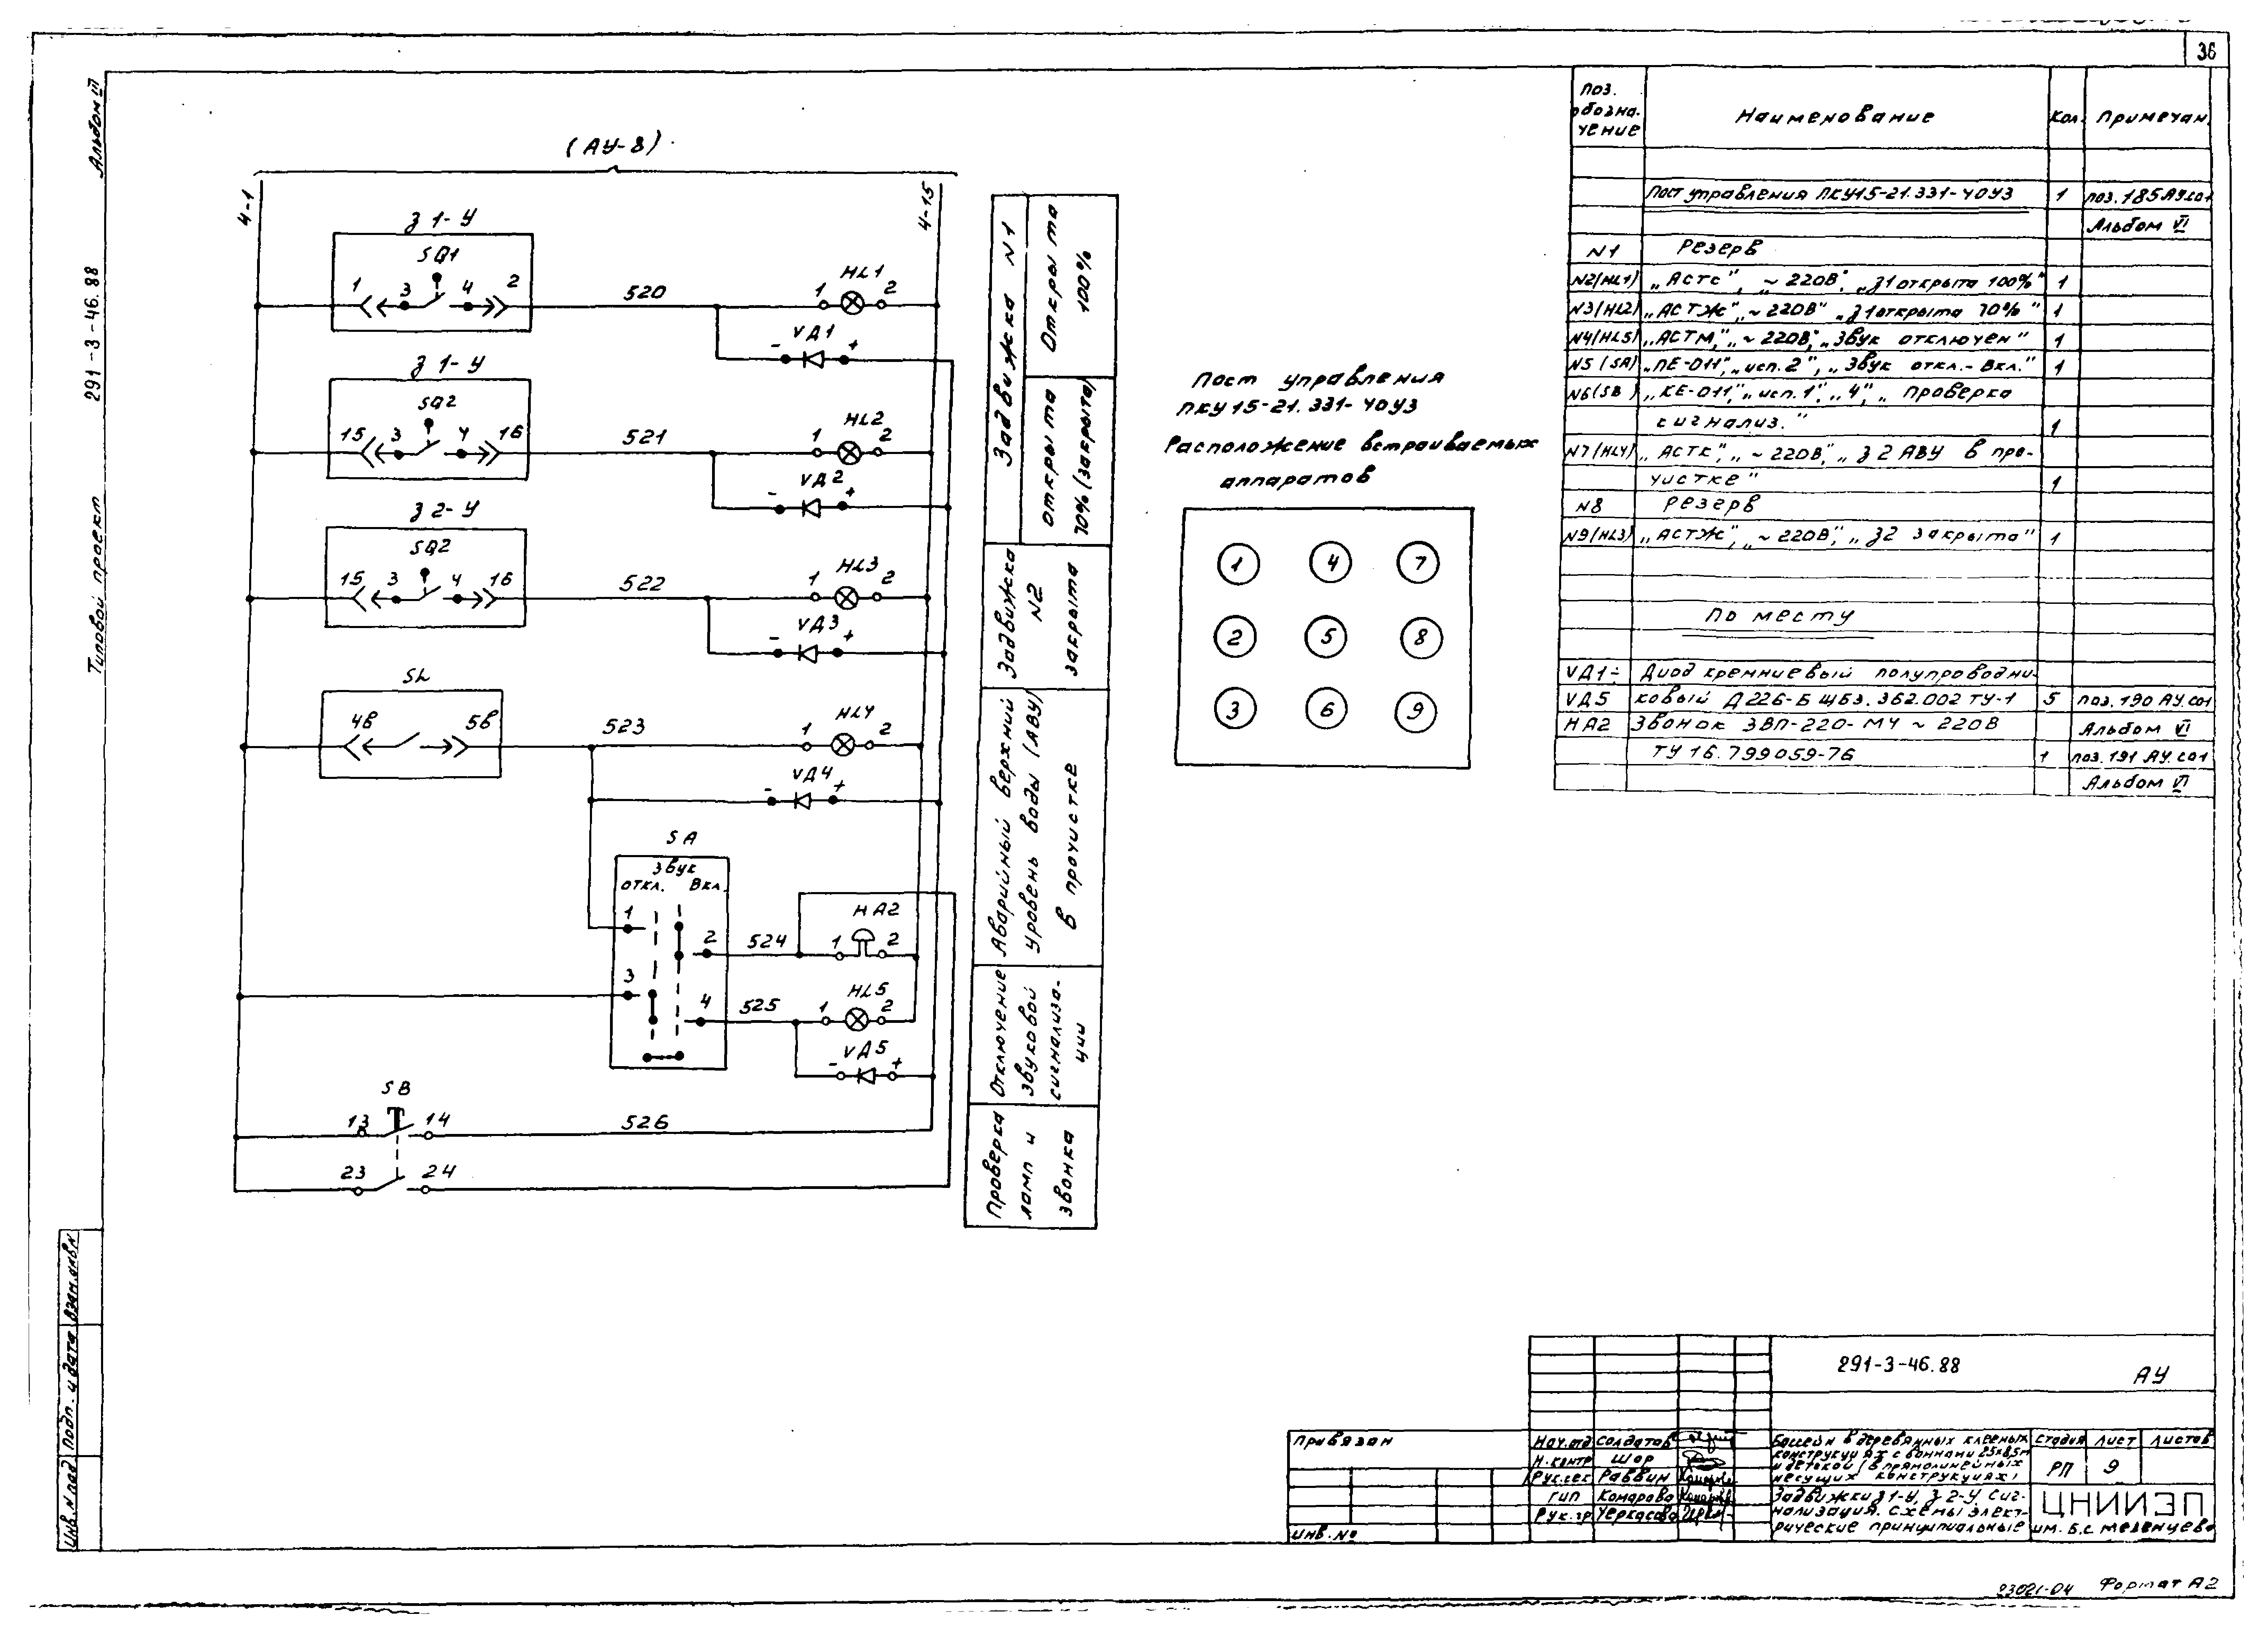 36
Альбом III
291-3-46.88
Типовой проект
(АУ-8)
4-1
4-15
З 1-У
SQ1
1 3 4 2
520
1 HL1 2
- VД1 +
З 1-У
SQ2
15 3 4 16
521
1 HL2 2
- VД2 +
З 2-У
SQ2
15 3 4 16
522
1 HL3 2
- VД3 +
SL
4в 5в
523
1 HL4 2
- VД4 +
SA
Звук
откл. Вкл.
1
2
524
HA2
1 2
3
4
525
1 HL5 2
- VД5 +
SB
13 14
526
23 24
Задвижка N1
Открыта
100%
открыта
70% (закрыта)
Задвижка
N2
закрыта
Аварийный верхний
уровень воды (АВУ)
в прочистке
Отключение
звуковой
сигнализа-
ции
Проверка
ламп и
звонка
Пост управления
ПКУ15-21.331-40У3
Расположение встраиваемых
аппаратов
1 4 7
2 5 8
3 6 9
Поз. обозна-чение Наименование Кол. Примечан.
Пост управления ПКУ15-21.331-40У3 1 поз.185 АУ.СО1
Альбом VI
N1 Резерв
N2(HL1) „АСТС", „~220В", „З1 открыта 100%" 1
N3(HL2) „АСТЖ", „~220В" „З1 открыта 70%" 1
N4(HL5) „АСТМ," „~220В", „Звук отключен" 1
N5 (SA) „ПЕ-011", „исп.2", „Звук откл.-Вкл." 1
N6(SB) „КЕ-011", „исп.1", „4", „Проверка
сигнализ." 1
N7(HL4) „АСТК", „~220В", „З2 АВУ в про-
чистке" 1
N8 Резерв
N9(HL3) „АСТЖ", „~220В", „З2 закрыта" 1
По месту
VД1÷ Диод кремниевый полупроводни-
VД5 ковый Д226-Б ЩБ3.362.002 ТУ-1 5 поз.190 АУ.СО1
HA2 Звонок ЗВП-220-М4 ~220В Альбом VI
ТУ 16.799059-76 1 поз.191 АУ.СО1
Альбом VI
Инв.N подл Подп. и дата Взам.инв.N
291-3-46.88
АУ
Привязан
Инв.No
Нач.отд Солдатов
Н.контр Шор
Рук.сек Раввин
ГИП Комарова
Рук.гр Черкасова
Бассейн в деревянных клееных
конструкциях с ваннами 25х8,5м
и детской (в прямолинейных
несущих конструкциях)
Стадия Лист Листов
РП 9
Задвижки З1-У, З2-У. Сиг-
нализация. Схемы элект-
рические принципиальные
ЦНИИЭП
им. Б.С. Мезенцева
23021-04 Формат А2